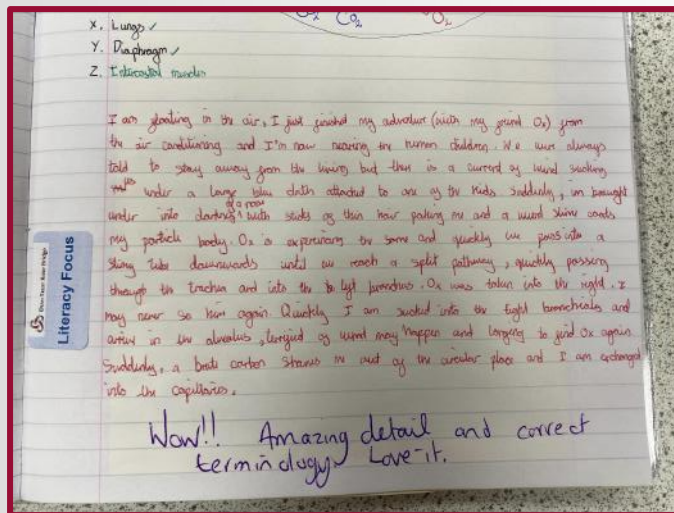 CO2 O2
X. Lungs ✓
Y. Diaphragm ✓
Z. Intercostal muscles
I am floating in the air, I just finished my adventure (with my friend Ox) from
the air conditioning and I'm now nearing the human children. We were always
told to stay away from the living but there is a current of wind sucking
us under a large blue cloth attached to one of the kids. Suddenly, im brought
under into darkness of a nose with sticks of thin hair poking me and a weird slime coats
my particle body. Ox is experiencing the same and quickly we pass into a
slimy tube downwards until we reach a split pathway, quickly passing
through the trachea and into the left bronchus. Ox was taken into the right. I
may never see him again. Quickly I am sucked into the tight bronchioles and
arrive in the alveolus, terrified of what may happen and longing to find Ox again.
Suddenly, a brute carbon shoves me out of the circular place and I am exchanged
into the capillaries.
Literacy Focus
Wow!! Amazing detail and correct
terminology. Love it.